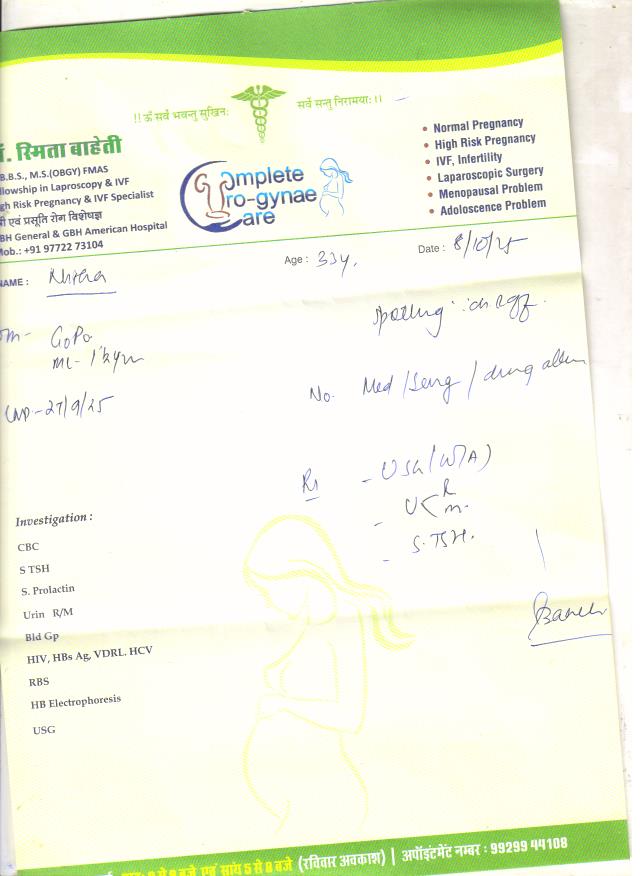 !!ॐ सर्वे भवन्तु सुखिनः सर्वे सन्तु निरामयाः।।
. स्मिता बाहेती
B.B.S., M.S.(OBGY) FMAS
llowship in Laproscopy & IVF
gh Risk Pregnancy & IVF Specialist
एवं प्रसूति रोग विशेषज्ञ
BH General & GBH American Hospital
Mob.: +91 97722 73104
Complete
Uro-gynae
Care
• Normal Pregnancy
• High Risk Pregnancy
• IVF, Infertility
• Laparoscopic Surgery
• Menopausal Problem
• Adoloscence Problem
NAME :
Age : 33y.
Date : 8/10/25
G0P0
spotting
27/9/25
No. Med / / drug
- USG (W/A)
- U< R
m.
- S. TSH.
Investigation :
CBC
S TSH
S. Prolactin
Urin R/M
Bld Gp
HIV, HBs Ag, VDRL. HCV
RBS
HB Electrophoresis
USG
बजे एवं सायं 5 से 8 बजे (रविवार अवकाश) | अपॉइंटमेंट नम्बर : 99299 44108